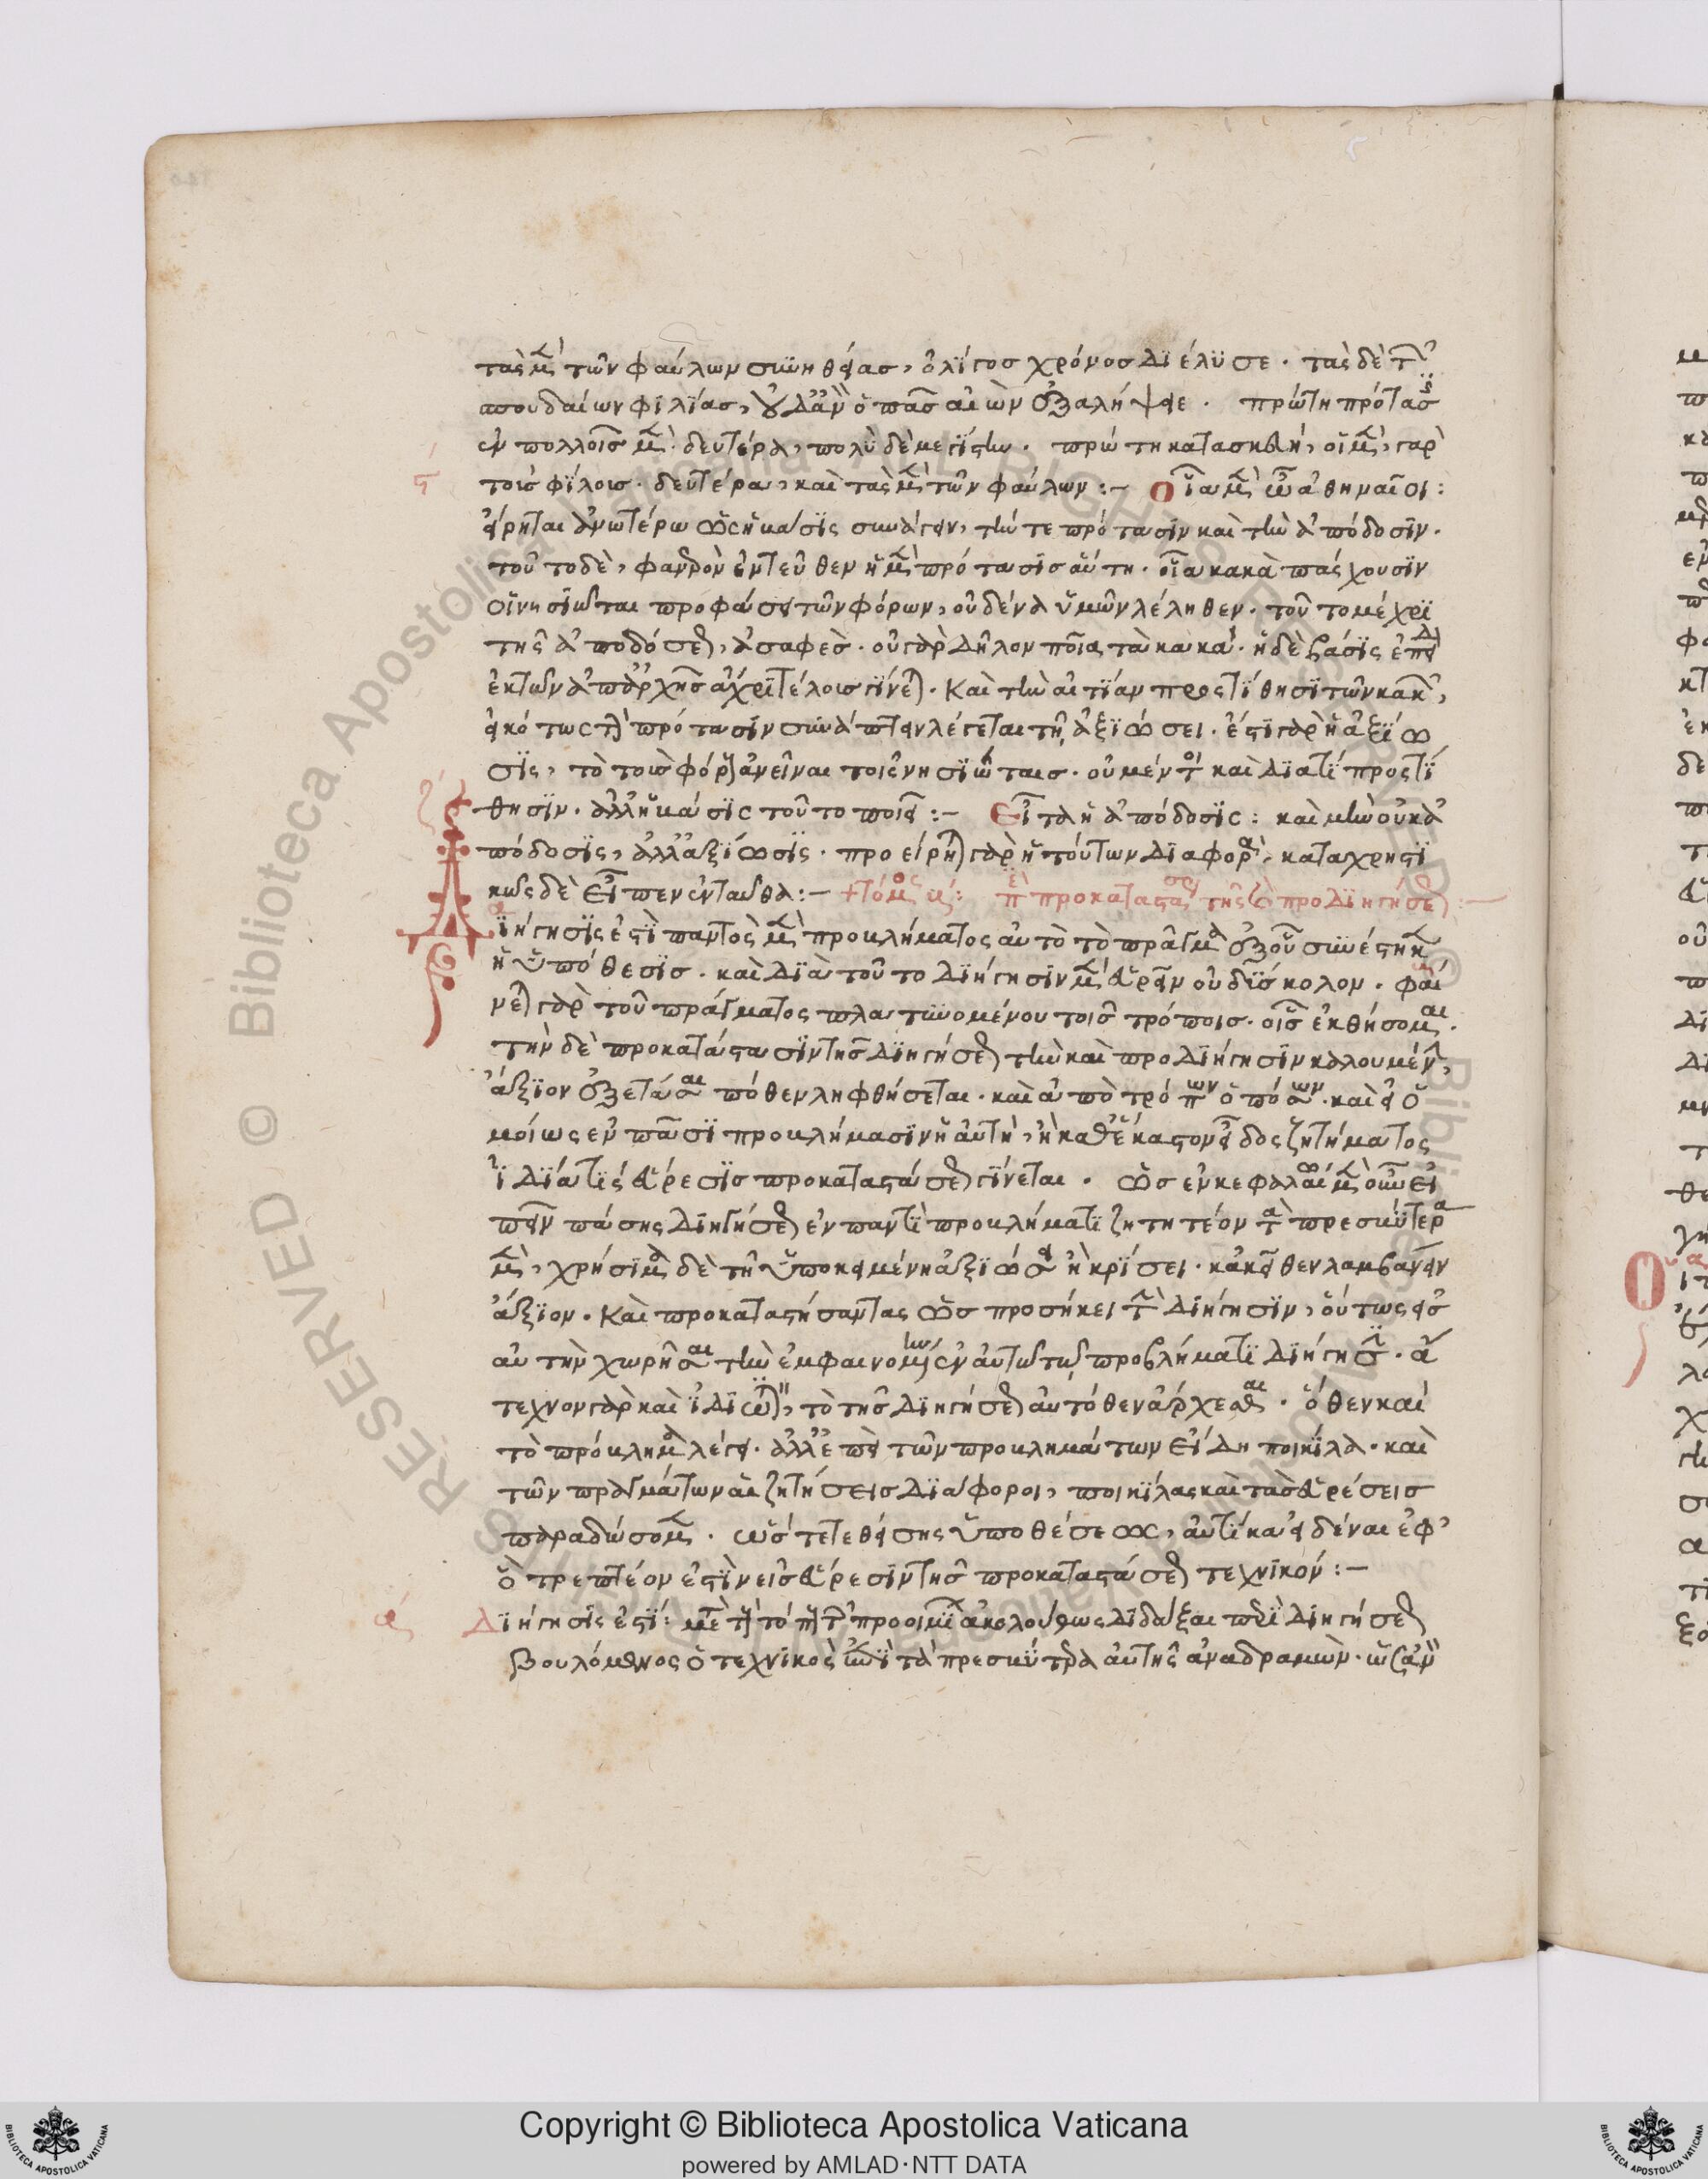 τὰς μὲν τῶν φαύλων συνηθείας, ὀλίγος χρόνος διέλυσε. τὰς δὲ τῶν
σπουδαίων φιλίας, οὐδ' ἂν ὁ πᾶς αἰὼν ἐξαλείψειε. πρώτη πρότασις
ἐν πολλοῖς μὲν. δευτέρα, πολὺ δὲ μεγίστην. πρώτη κατασκευὴ, οἱ μὲν, γὰρ
τοῖς φίλοις. δευτέρα, καὶ τὰς μὲν τῶν φαύλων :- Οἷα μὲν ὦ ἀθηναῖοι :
εἴρηται ἀνωτέρω ὡς ἡ βάσις συνάγειν, τήν τε πρότασιν καὶ τὴν ἀπόδοσιν.
τοῦτο δὲ, φανερὸν ἐντεῦθεν ἡ μὲν πρότασις αὕτη. οἷα κακὰ πάσχουσιν
οἱ νησιῶται προφάσει τῶν φόρων, οὐδένα ὑμῶν λέληθεν. τοῦτο μέχρι
τῆς ἀποδόσεως, ἀσαφές. οὐ γὰρ δῆλον ποῖα τὰ κακά. ἡ δὲ βάσις ἐπειδὴ
ἐκ τῶν ἀπαρχῆς ἄχρι τέλους γίνεται. καὶ τὴν αἰτίαν προστίθησι τῶν κακῶν,
εἰκότως τὴν πρότασιν συνάπτειν λέγεται τῇ ἀξιώσει. ἔστι γὰρ ἡ ἀξίω
σις, τὸ τοὺς φόρους ἀνεῖναι τοῖς νησιώταις. οὐ μέντοι καὶ διατί προστί
θησιν. ἀλλ' ἡ βάσις τοῦτο ποιεῖ :- Εἶτα ἡ ἀπόδοσις : καὶ μὴν οὐκ ἀ
πόδοσις, ἀλλ' ἀξίωσις. προείρηται γὰρ ἡ τούτων διαφορὰ, καταχρηστι
κῶς δὲ εἶπεν ἐνταῦθα :-
Διήγησις ἐστὶ παντὸς μὲν προβλήματος αὐτὸ τὸ πρᾶγμα ἐξ οὗ συνέστηκεν
ἡ ὑπόθεσις. καὶ διὰ τοῦτο διήγησιν μὲν εὑρεῖν οὐ δύσκολον. φαί
νεται γὰρ τοῦ πράγματος πλατυνομένου τοῖς τρόποις οἷς ἐκθήσομαι.
τὴν δὲ προκατάστασιν τῆς διηγήσεως τὴν καὶ προδιήγησιν καλουμένην,
ἄξιον ἐξετάσαι πόθεν ληφθήσεται. καὶ ἀπὸ τρόπων ὁπόσων. καὶ εἰ ὁ
μοίως ἐν πᾶσι προβλήμασιν ἡ αὐτὴ, ἢ καθ' ἕκαστον εἶδος ζητήματος
ἰδία τις εὕρεσις προκαταστάσεως γίνεται. ὡς ἐν κεφαλαίῳ μὲν οὖν εἰ
πεῖν πάσης διηγήσεως ἐν παντὶ προβλήματι ζητητέον τὰ πρεσβύτερα
μὲν, χρήσιμα δὲ τῇ ὑποκειμένῃ ἀξιώσει ἢ κρίσει. κἀκεῖθεν λαμβάνειν
ἄξιον. καὶ προκαταστήσαντας ὡς προσήκει τὴν διήγησιν, οὕτως εἰς
αὐτὴν χωρῆσαι τὴν ἐμφαινομένην ἐν αὐτῷ τῷ προβλήματι διήγησιν. ἄ
τεχνον γὰρ καὶ ἰδιωτικὸν, τὸ τῆς διηγήσεως αὐτόθεν ἄρχεσθαι. ὅθεν καὶ
τὸ πρόβλημα λέγει. ἀλλ' ἐπεὶ τῶν προβλημάτων εἴδη ποικίλα. καὶ
τῶν πραγμάτων αἱ ζητήσεις διάφοροι, ποικίλας καὶ τὰς εὑρέσεις
παραδώσομεν. ὥστε τεθείσης ὑποθέσεως, αὐτίκα εἰδέναι ἐφ'
ὃ τρεπτέον ἐστὶν εἰς εὕρεσιν τῆς προκαταστάσεως τεχνικόν :-
Διήγησις ἐστί: μετὰ τὸν τόπον τῶν προοιμίων ἀκολούθως διδάξαι περὶ διηγήσεως
βουλόμενος ὁ τεχνικὸς ἐπὶ τὰ πρεσβύτερα αὐτῆς ἀναδραμὼν.